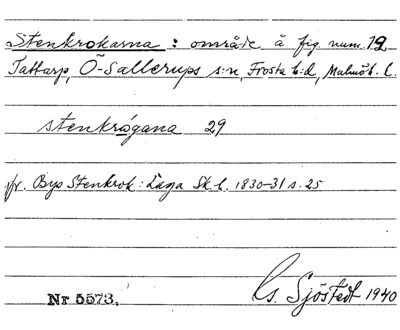 Stenkrokarna : område å fig. num. 19
Tattarp, Ö-Sallerups s:n, Frosta h:d, Malmöh. l.
stenkrógana 29
jfr. Bys Stenkrok : Laga Sk. h. 1830-31 s. 25
Nr 5573, G. Sjöstedt 1940